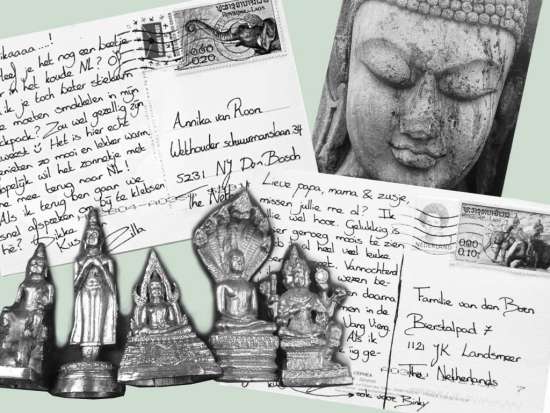 ikaaaa ....!
je het nog een beetje
in het koude NL? Of
ik je toch beter stiekum
moeten smokkelen in mijn
ckpack? Zou wel gezellig zijn
weest Het is hier echt
genieten zo mooi en lekker warm.
het zonnetje met
mee terug naar NL!
Als ik terug ben gaan we
snel afspreken om bij te kletsen
hè?
Dikke
Kus
Annika van Roon
Wethouder schuurmanslaan 34
5231 NJ Den Bosch
The Ne
0.80
0.20
Lieve papa, mama & zusje,
missen jullie me al? Ik
llie wel hoor. Gelukkig is
er genoeg moois te zien
al heel veel leuke
Vannochtend
weren be-
en daarna
men in de
Vang Vieng.
Als ik
ge-
ook voor Binky
NEDERLAND
0.80
0.10
Familie van den Born
Bierstalpad 7
1121 JK Landsmeer
The Netherlands